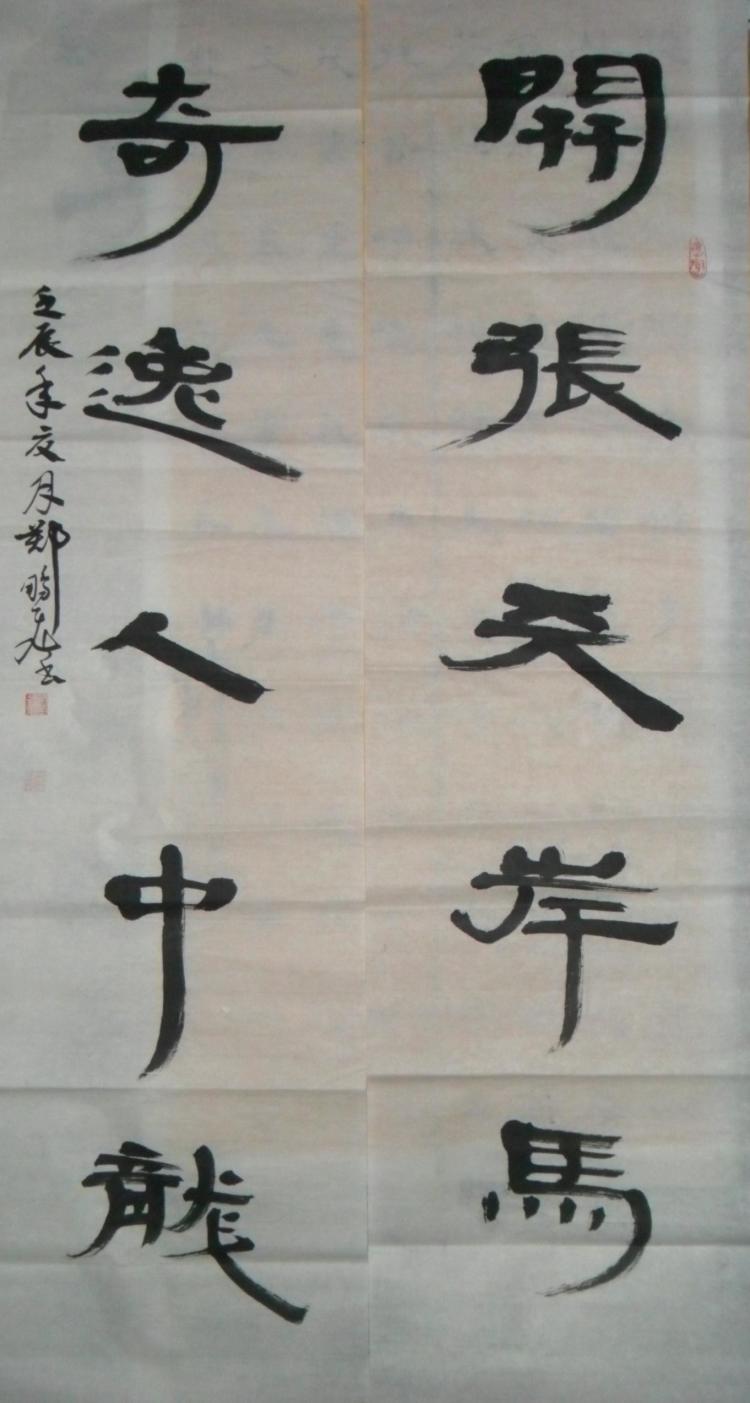 開張天岸馬
奇逸人中龍
壬辰年夏月鄭鵬飛书